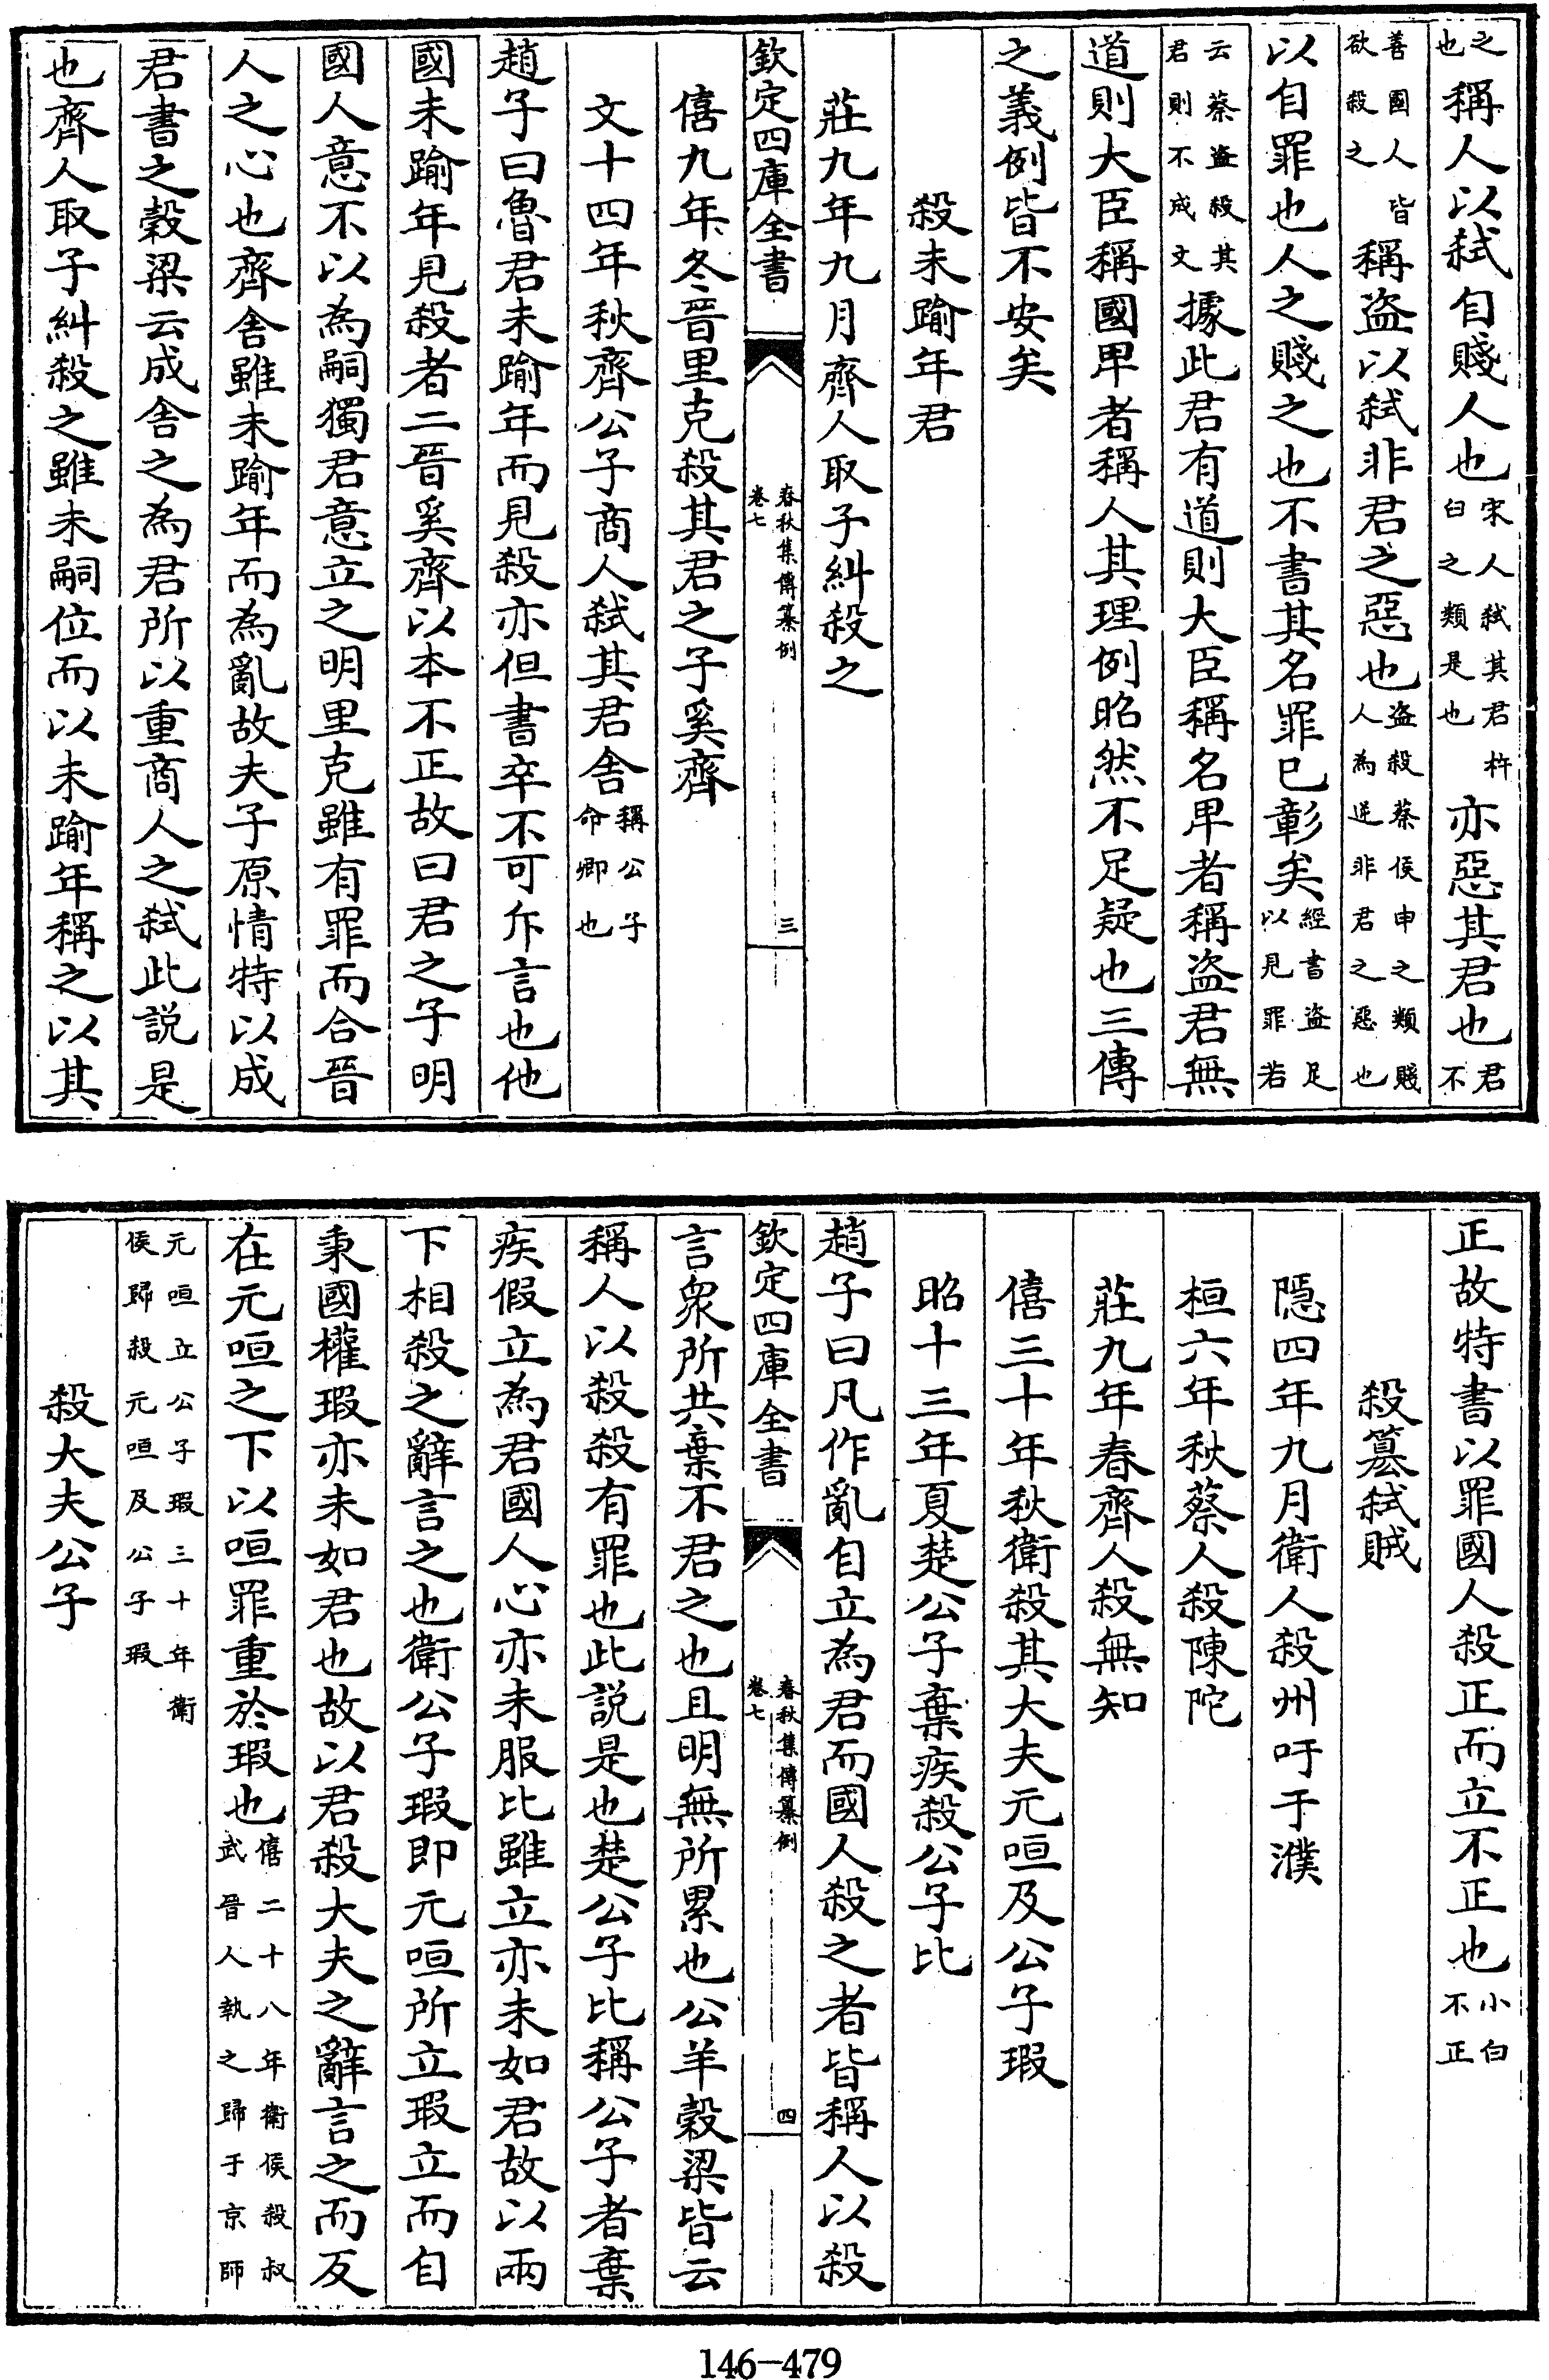 之也稱人以弑自賤人也宋人弑其君杵臼之類是也亦惡其君也君不
善國人皆欲殺之稱盜以弑非君之惡也盜殺蔡侯申之類賤人為逆非君之惡也
以自罪也人之賤之也不書其名罪已彰矣經書盜足以見罪若
云蔡盜殺其君則不成文據此君有道則大臣稱名卑者稱盜君無
道則大臣稱國卑者稱人其理例昭然不足疑也三傳
之義例皆不安矣
殺未踰年君
莊九年九月齊人取子糾殺之
欽定四庫全書
春秋集傳纂例
卷七
三
僖九年冬晉里克殺其君之子奚齊
文十四年秋齊公子商人弑其君舍稱公子命卿也
趙子曰魯君未踰年而見殺亦但書卒不可斥言也他
國未踰年見殺者二晉奚齊以本不正故曰君之子明
國人意不以為嗣獨君意立之明里克雖有罪而合晉
人之心也齊舍雖未踰年而為亂故夫子原情特以成
君書之穀梁云成舍之為君所以重商人之弑此説是
也齊人取子糾殺之雖未嗣位而以未踰年稱之以其
正故特書以罪國人殺正而立不正也小白不正
殺簒弑賊
隱四年九月衛人殺州吁于濮
桓六年秋蔡人殺陳陀
莊九年春齊人殺無知
僖三十年秋衛殺其大夫元咺及公子瑕
昭十三年夏楚公子棄疾殺公子比
趙子曰凡作亂自立為君而國人殺之者皆稱人以殺
欽定四庫全書
春秋集傳纂例
卷七
四
言衆所共棄不君之也且明無所累也公羊穀梁皆云
稱人以殺殺有罪也此説是也楚公子比稱公子者棄
疾假立為君國人心亦未服比雖立亦未如君故以兩
下相殺之辭言之也衛公子瑕即元咺所立瑕立而自
秉國權瑕亦未如君也故以君殺大夫之辭言之而反
在元咺之下以咺罪重於瑕也僖二十八年衛侯殺叔武晉人執之歸于京師
元咺立公子瑕三十年衛侯歸殺元咺及公子瑕
殺大夫公子
146-479